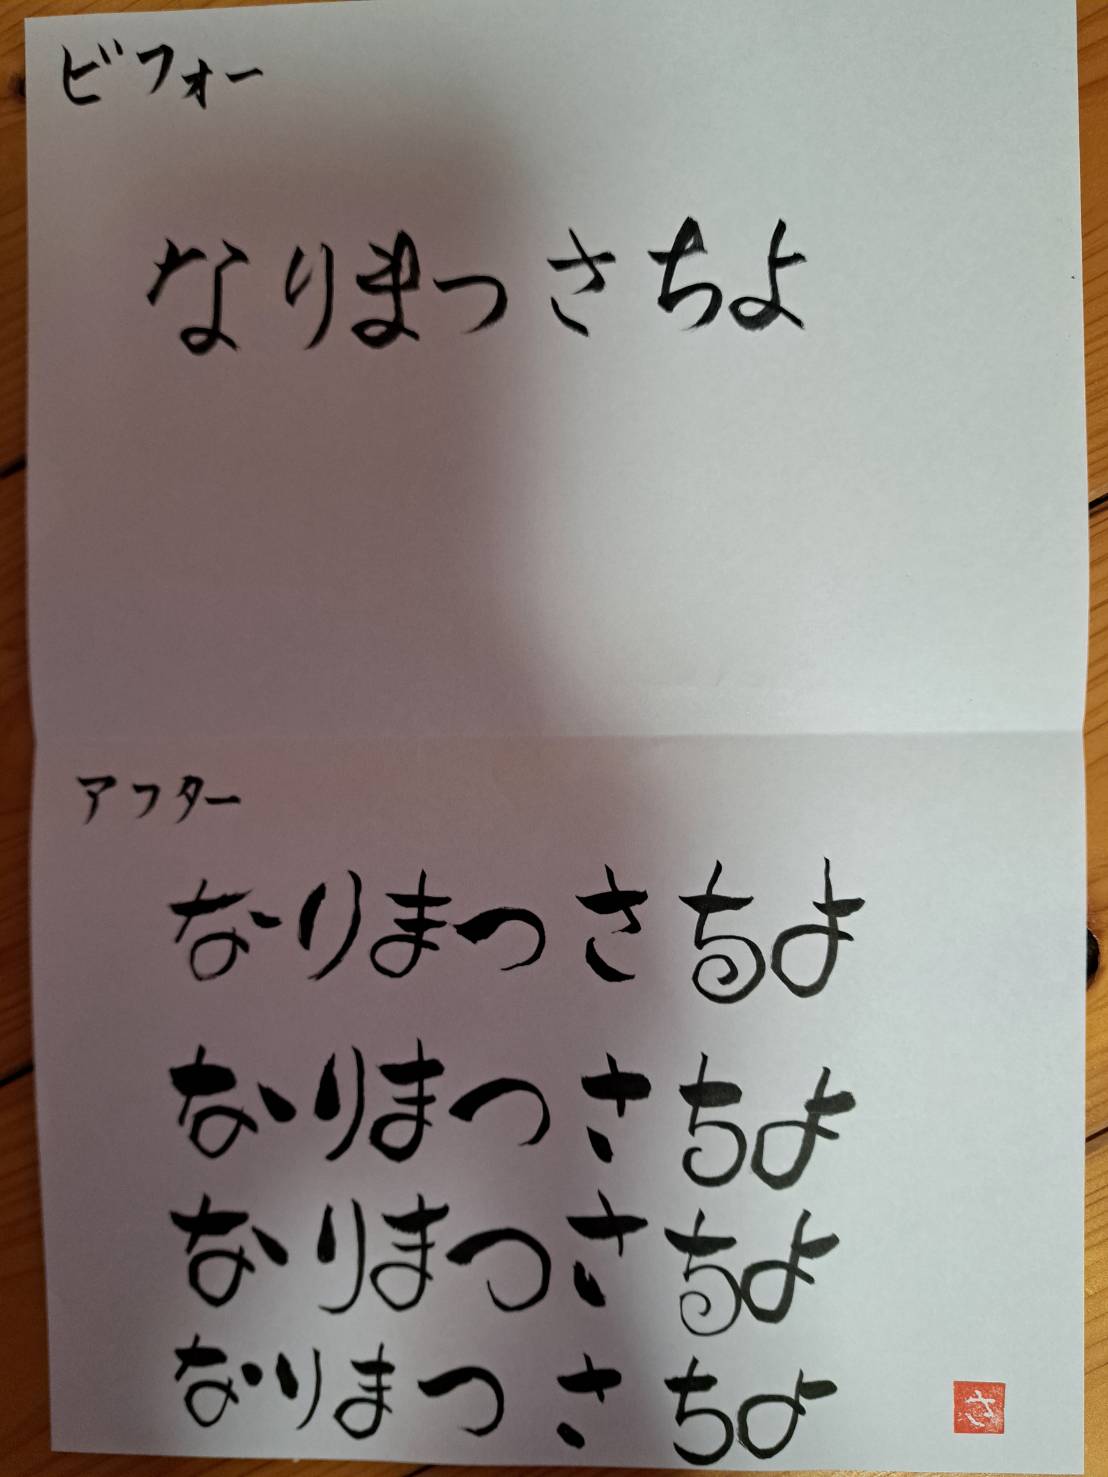 ビフォー
なりまつ さちよ
アフター
なりまつ さちよ
なりまつ さちよ
なりまつ さちよ
なりまつ さちよ
さ